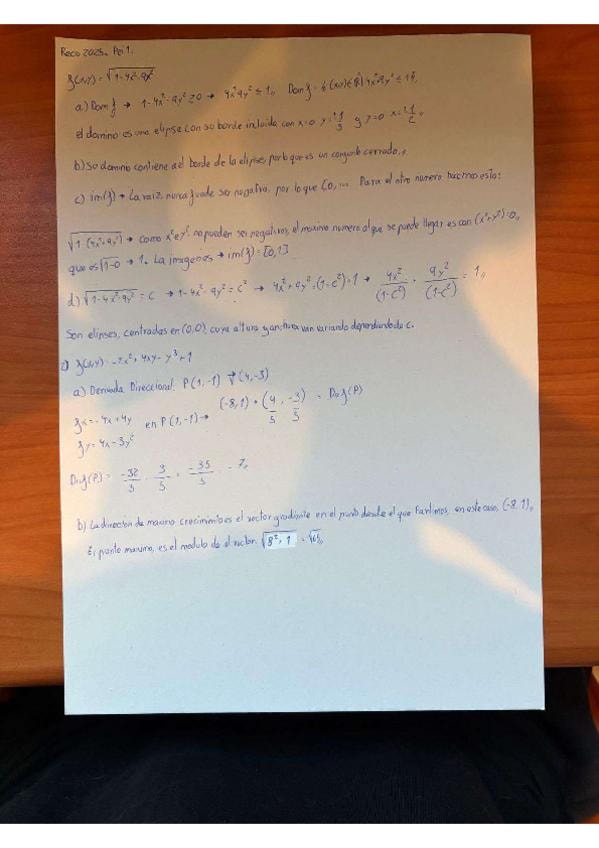 Reco 2023. Pei 1.
f(x,y) = √1-4x²-9y²
a) Dom f → 1-4x²-9y² ≥ 0 → 4x²+9y² ≤ 1,, Dom f = {(x,y) ∈ ℝ² | 4x²+9y² ≤ 1},,
el domino es una elipse con su borde incluido con x=0 y=±1/3 y y=0 x=±1/2,,
b) Su dominio contiene a el borde de la elipse, por lo que es un conjunto cerrado,,
c) im(f) → La raiz, nunca puede ser negativa, por lo que [0, ... Para el otro numero hacemos esto:
√1-(4x²+9y²) → como x² e y² no pueden ser negativos, el maximo numero al que se puede llegar es con (x²+y²)=0,,
que es √1-0 → 1. La imagen es → im(f) = [0,1]
d) √1-4x²-9y² = c → 1-4x²-9y² = c² → 4x²+9y² = (1-c²)=1 → 4x²/(1-c²) + 9y²/(1-c²) = 1,,
Son elipses, centradas en (0,0), cuya altura y anchura van variando dependiendo de c.
2) f(x,y) = -2x²+4xy-y³+1
a) Derivada Direccional. P(1,-1) v⃗(4,-3)
fx = -4x+4y
fy = 4x-3y²
en P(1,-1) → (-8,1) • (4/5, -3/5) = Dvf(P)
Dvf(P) = -32/5 - 3/5 = -35/5 = -7,,
b) La direccion de maximo crecimiento es el vector gradiente en el punto desde el que partimos, en este caso, (-8,1),,
punto maximo, es el modulo de el vector. √8²+1 = √65,,